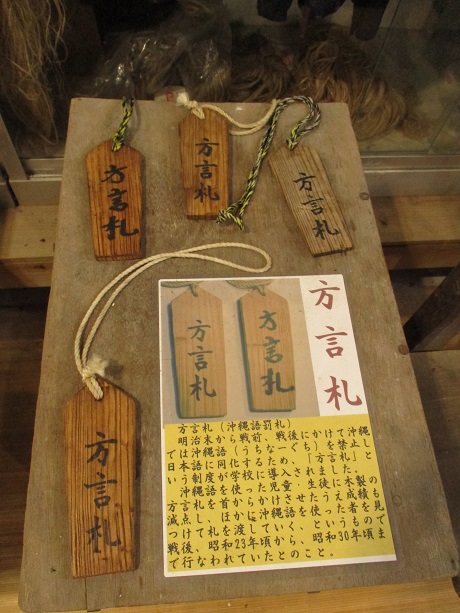 方言札
方言札
方言札
方言札
方言札
方言札
方言札
方言札(沖縄語罰札)
明治末から戦前、戦後にかけて沖縄
では沖縄語(うちなーぐち)を禁止し
日本語に同化するため、「方言札」と
いう制度が学校に導入されました。
沖縄語を使った児童・生徒に木製の
方言札を首からかけさせたうえ成績も
減点し、ほかに沖縄語を使った者を見
つけて札を渡していく、というもので
戦後、昭和23年頃から、昭和30年頃ま
で行なわれていたとのこと。